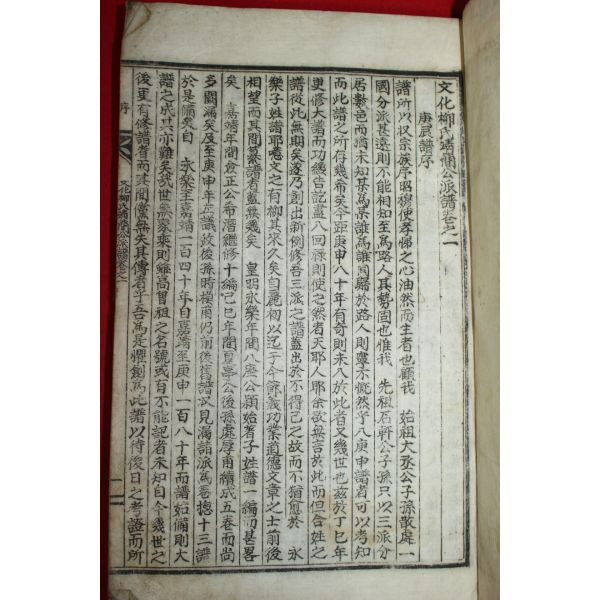 文化柳氏靖肅公派譜卷之一
庚辰譜序
譜所以收宗族序昭穆使孝悌之心油然而生者也顧我 始祖大丞公子孫散處一
國分派甚遠則不能相知至為路人其勢固也惟我 先祖石軒公子孫只以三派分
居數邑而猶未知某為某誰為誰同歸於路人則寧不慨然乎八庚申譜者可以考知
而此譜之所存幾希矣今距庚申八十年有奇則未入於此者又幾世也玆於丁巳年
更修大譜而功幾告訖盡入回祿則使之然者天耶人耶余欲無言於此而但合姓之
譜從此無期矣遂乃創出新例修吾三派之譜蓋出於不得已之故而不猶愈於 永
樂子姓譜耶噫文之有柳其來久矣自麗初以迄于今節義功業道德文章之士前後
相望而其間纂譜者蓋無幾矣 皇明永樂年間八度公穎始著子姓譜一編而甚畧
矣 嘉靖年間僉正公希潛繼修十編己巳年間夏亭公後孫處厚甫續成五卷而尚
多闕漏矣及至庚申年左議政後孫時模甫仍前後舊譜以見漏諸派為卷總十三譜
於是備矣自 永樂至嘉靖一百四十年自嘉靖至庚申一百八十年而譜始備則大
譜之成其亦難矣哉世無家乘則雖高曾祖之名號或有不能記者未知自今幾世之
後更有修譜者而其間黨無失其傳者乎吾為是懼創為此譜以待後日之考證而所
序
文化柳氏靖肅公派譜卷之一
一